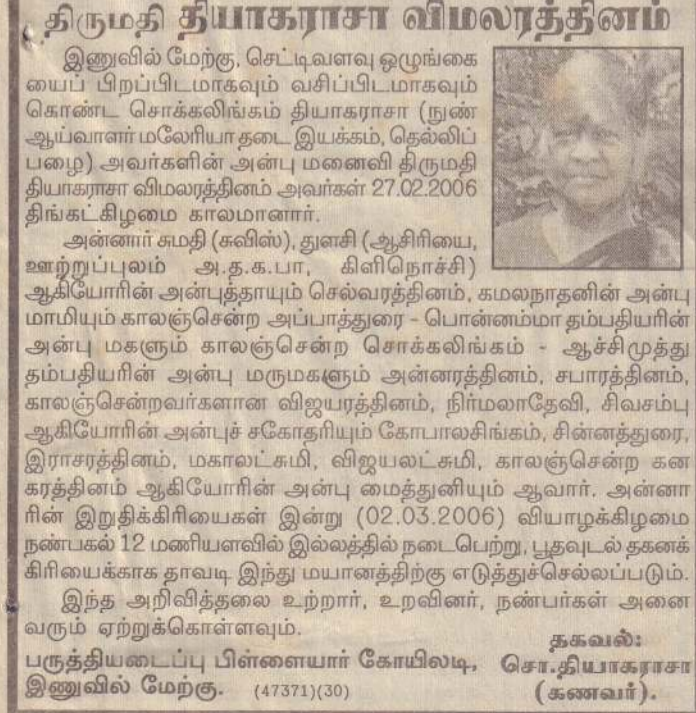 திருமதி தியாகராசா விமலரத்தினம்
இணுவில் மேற்கு, செட்டிவளவு ஒழுங்கை
யைப் பிறப்பிடமாகவும் வசிப்பிடமாகவும்
கொண்ட சொக்கலிங்கம் தியாகராசா (நுண்
ஆய்வாளர் மலேரியா தடை இயக்கம், தெல்லிப்
பழை) அவர்களின் அன்பு மனைவி திருமதி
தியாகராசா விமலரத்தினம் அவர்கள் 27.02.2006
திங்கட்கிழமை காலமானார்.
அன்னார் சுமதி (சுவிஸ்), துளசி (ஆசிரியை,
ஊற்றுப்புலம் அ.த.க.பா, கிளிநொச்சி)
ஆகியோரின் அன்புத்தாயும் செல்வரத்தினம், கமலநாதனின் அன்பு
மாமியும் காலஞ்சென்ற அப்பாத்துரை - பொன்னம்மா தம்பதியரின்
அன்பு மகளும் காலஞ்சென்ற சொக்கலிங்கம் - ஆச்சிமுத்து
தம்பதியரின் அன்பு மருமகளும் அன்னரத்தினம், சபாரத்தினம்,
காலஞ்சென்றவர்களான விஜயரத்தினம், நிர்மலாதேவி, சிவசம்பு
ஆகியோரின் அன்புச் சகோதரியும் கோபாலசிங்கம், சின்னத்துரை,
இராசரத்தினம், மகாலட்சுமி, விஜயலட்சுமி, காலஞ்சென்ற கன
கரத்தினம் ஆகியோரின் அன்பு மைத்துனியும் ஆவார். அன்னா
ரின் இறுதிக்கிரியைகள் இன்று (02.03.2006) வியாழக்கிழமை
நண்பகல் 12 மணியளவில் இல்லத்தில் நடைபெற்று, பூதவுடல் தகனக்
கிரியைக்காக தாவடி இந்து மயானத்திற்கு எடுத்துச்செல்லப்படும்.
இந்த அறிவித்தலை உற்றார், உறவினர், நண்பர்கள் அனை
வரும் ஏற்றுக்கொள்ளவும்.
பருத்தியடைப்பு பிள்ளையார் கோயிலடி,
இணுவில் மேற்கு. (47371)(30)
தகவல்:
சொ.தியாகராசா
(கணவர்).